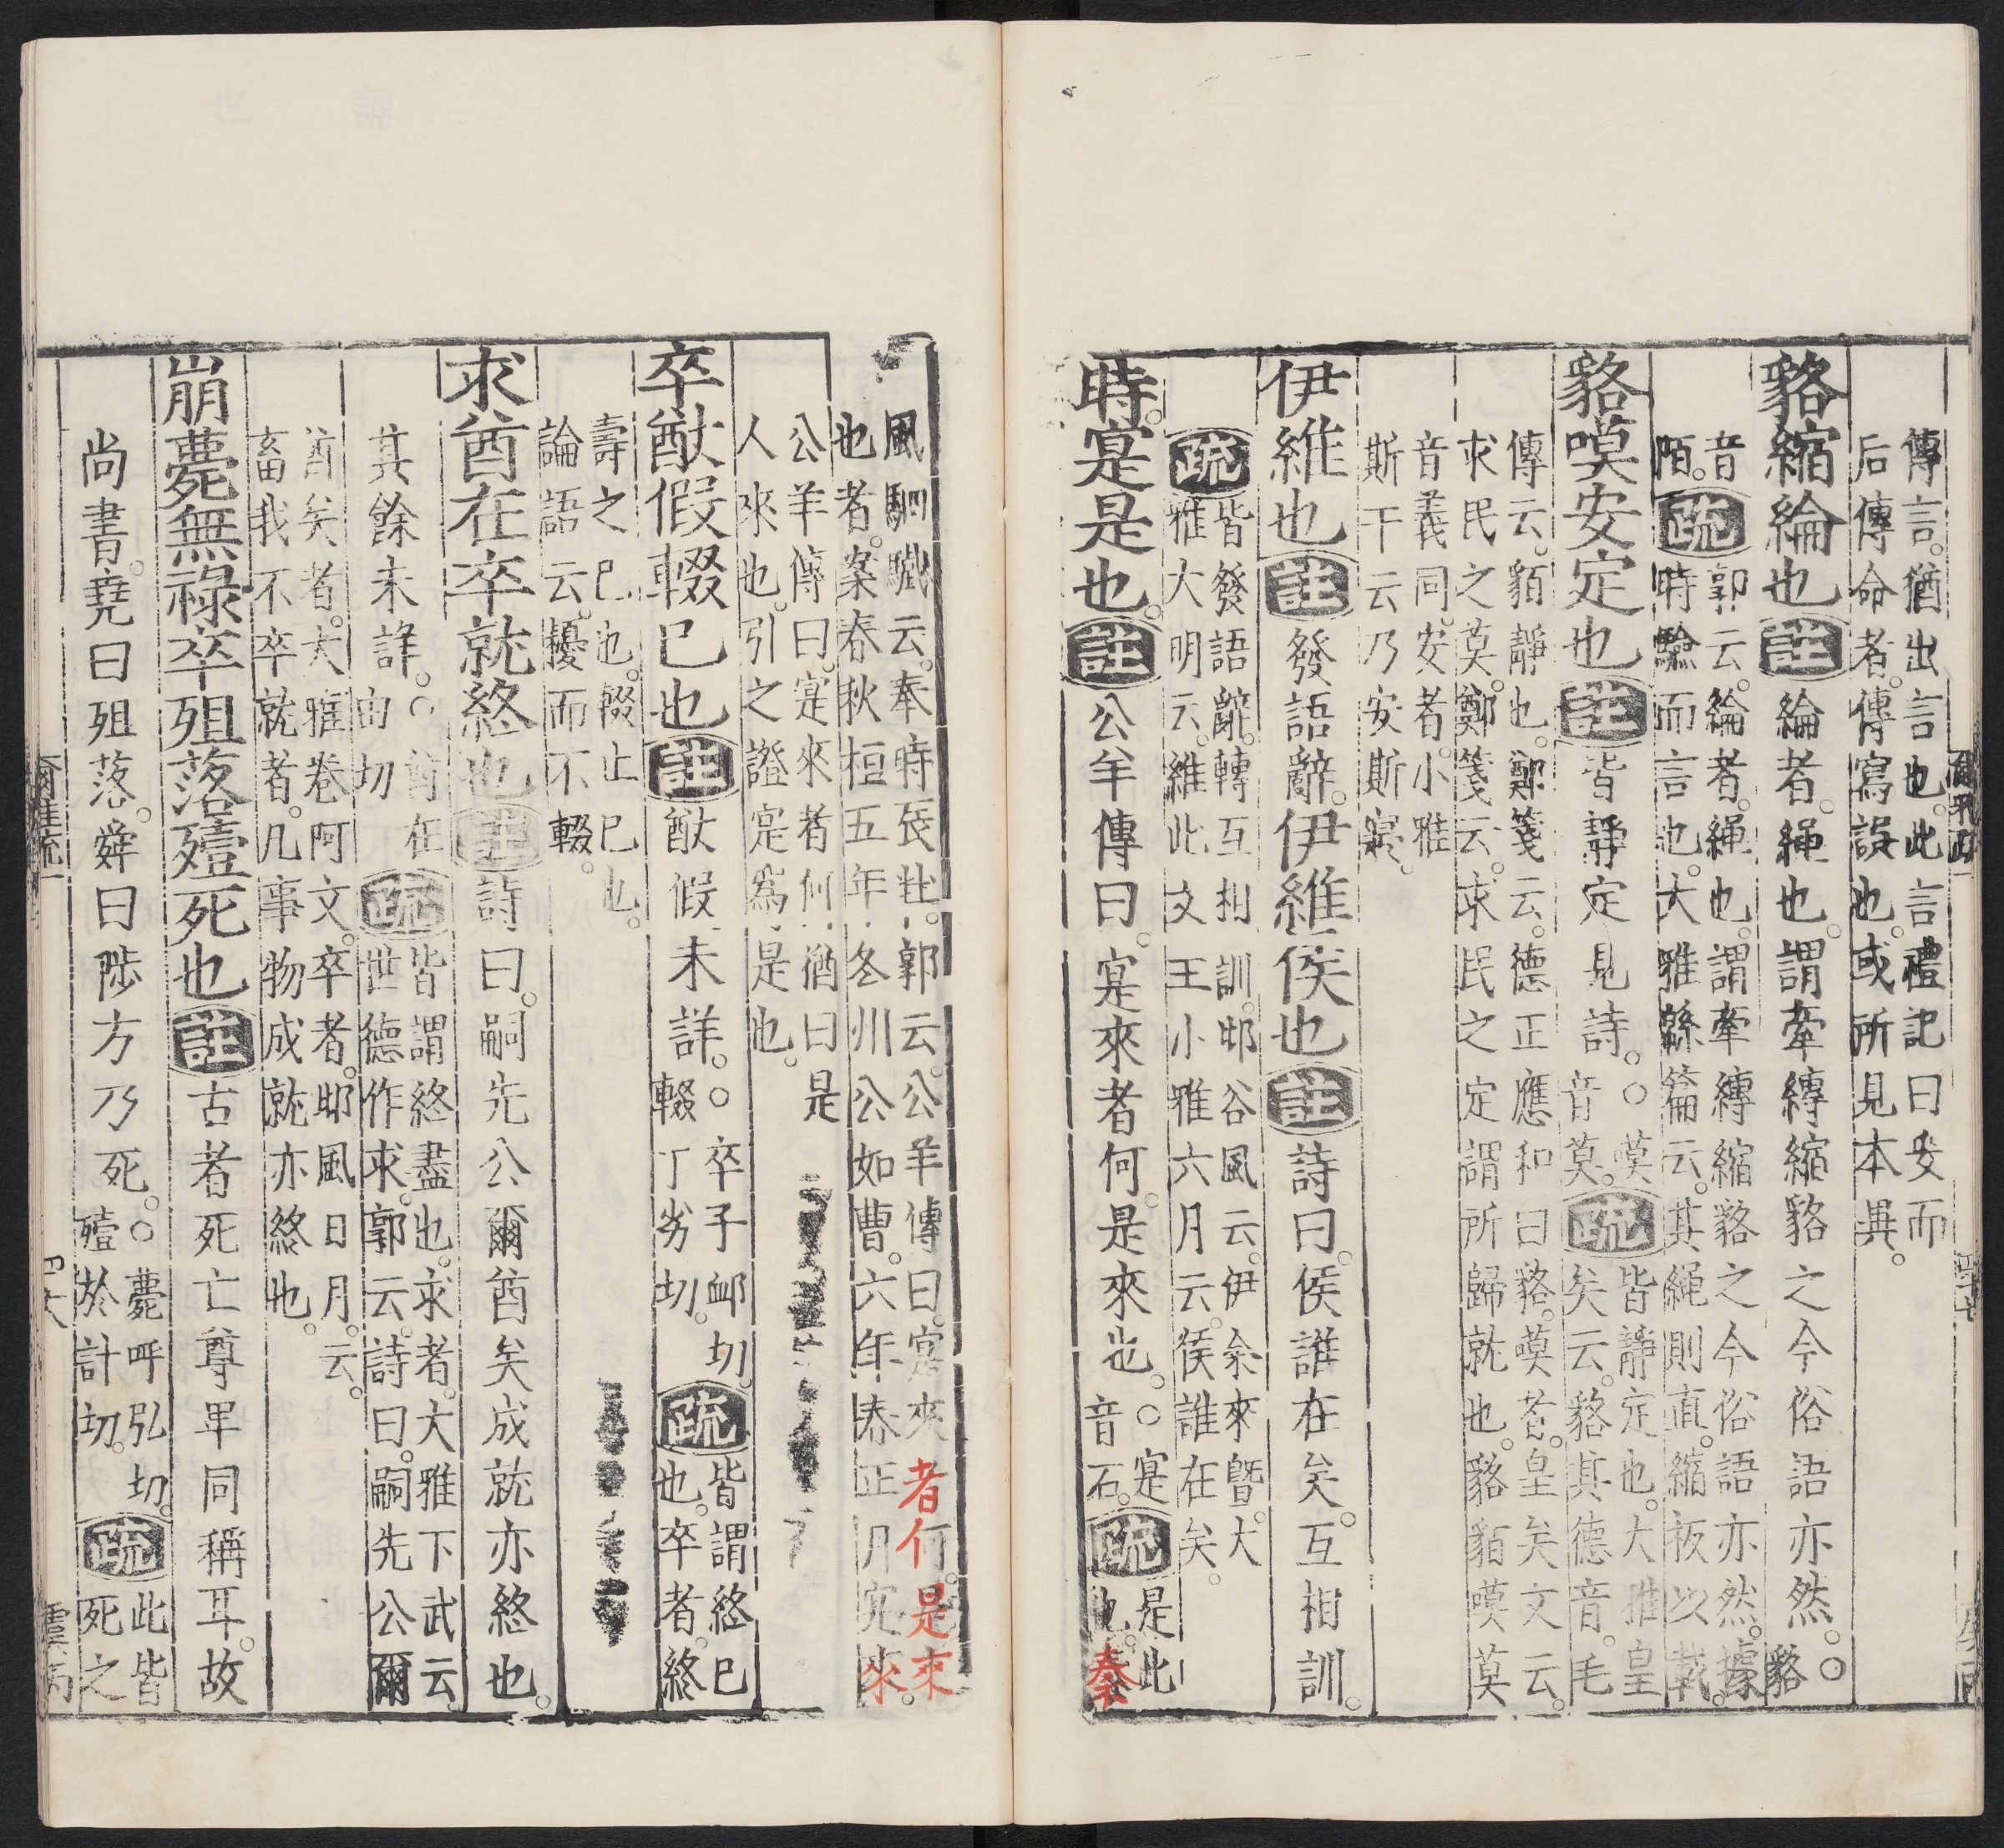 傳言。猶出言也。此言禮記曰妥而
后傳命者。傳寫誤也。或所見本異。
貉縮綸也註綸者。繩也。謂牽縛縮貉之今俗語亦然。○貉
音
陌。疏郭云。綸者。繩也。謂牽縛縮貉之今俗語亦然。據
時驗而言也。大雅緜篇云。其繩則直。縮板以載。
貉嘆安定也註皆靜定見詩。○嘆音莫。疏皆靜定也。大雅皇
矣云。貉其德音。毛
傳云。貊靜也。鄭箋云。德正應和曰貉。嘆者。皇矣文云。
求民之莫。鄭箋云。求民之定謂所歸就也。貉貊嘆莫
音義同。安者。小雅
斯干云乃安斯寢。
伊維也註發語辭。伊維侯也註詩曰。侯誰在矣。互相訓。
疏皆發語辭。轉互相訓。邶谷風云。伊余來曁。大
雅大明云。維此文王小雅六月云。侯誰在矣。
時。寔是也。註公羊傳曰。寔來者何。是來也。○寔
音石。疏是此
也。秦
風駟驖云。奉時辰牡。郭云。公羊傳曰。寔來者何。是來
也者。案春秋桓五年冬州公如曹。六年春正月寔來。
公羊傳曰。寔來者何猶曰是
人來也。引之證寔爲是也。
卒猷假輟已也註猷假未詳。○卒子卹切。
輟丁劣切。疏皆謂終已
也。卒者。終
壽之已也。輟止已也。
論語云。擾而不輟。
求酋在卒就終也註詩曰。嗣先公爾酋矣成就亦終也。
其餘未詳。○酋在
由切疏皆謂終盡也。求者。大雅下武云
世德作求。郭云。詩曰。嗣先公爾
酋矣者。大雅卷阿文。卒者。邶風日月。云。
畜我不卒就者。凡事物成就亦終也。
崩薨無祿卒殂落殪死也註古者死亡尊卑同稱耳。故
尚書。堯曰殂落。舜曰陟方乃死。○薨呼弘切。
殪於計切。疏此皆
死之